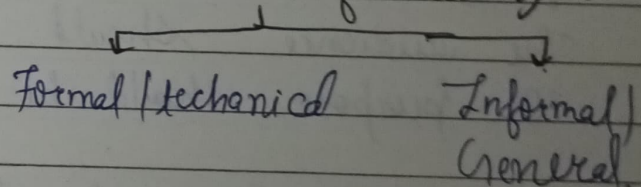 Formal / techanical Informal /
General